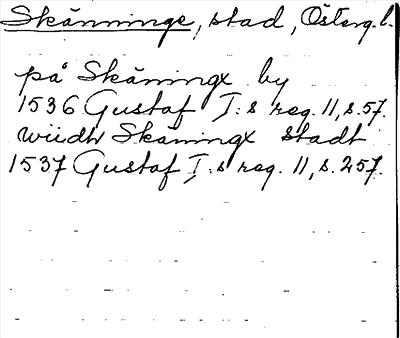 Skänninge, stad, Österg. l.
på Skäningx by
1536 Gustaf I:s reg. 11, s. 57.
wiidh Skäningx stadt
1537 Gustaf I:s reg. 11, s. 257.